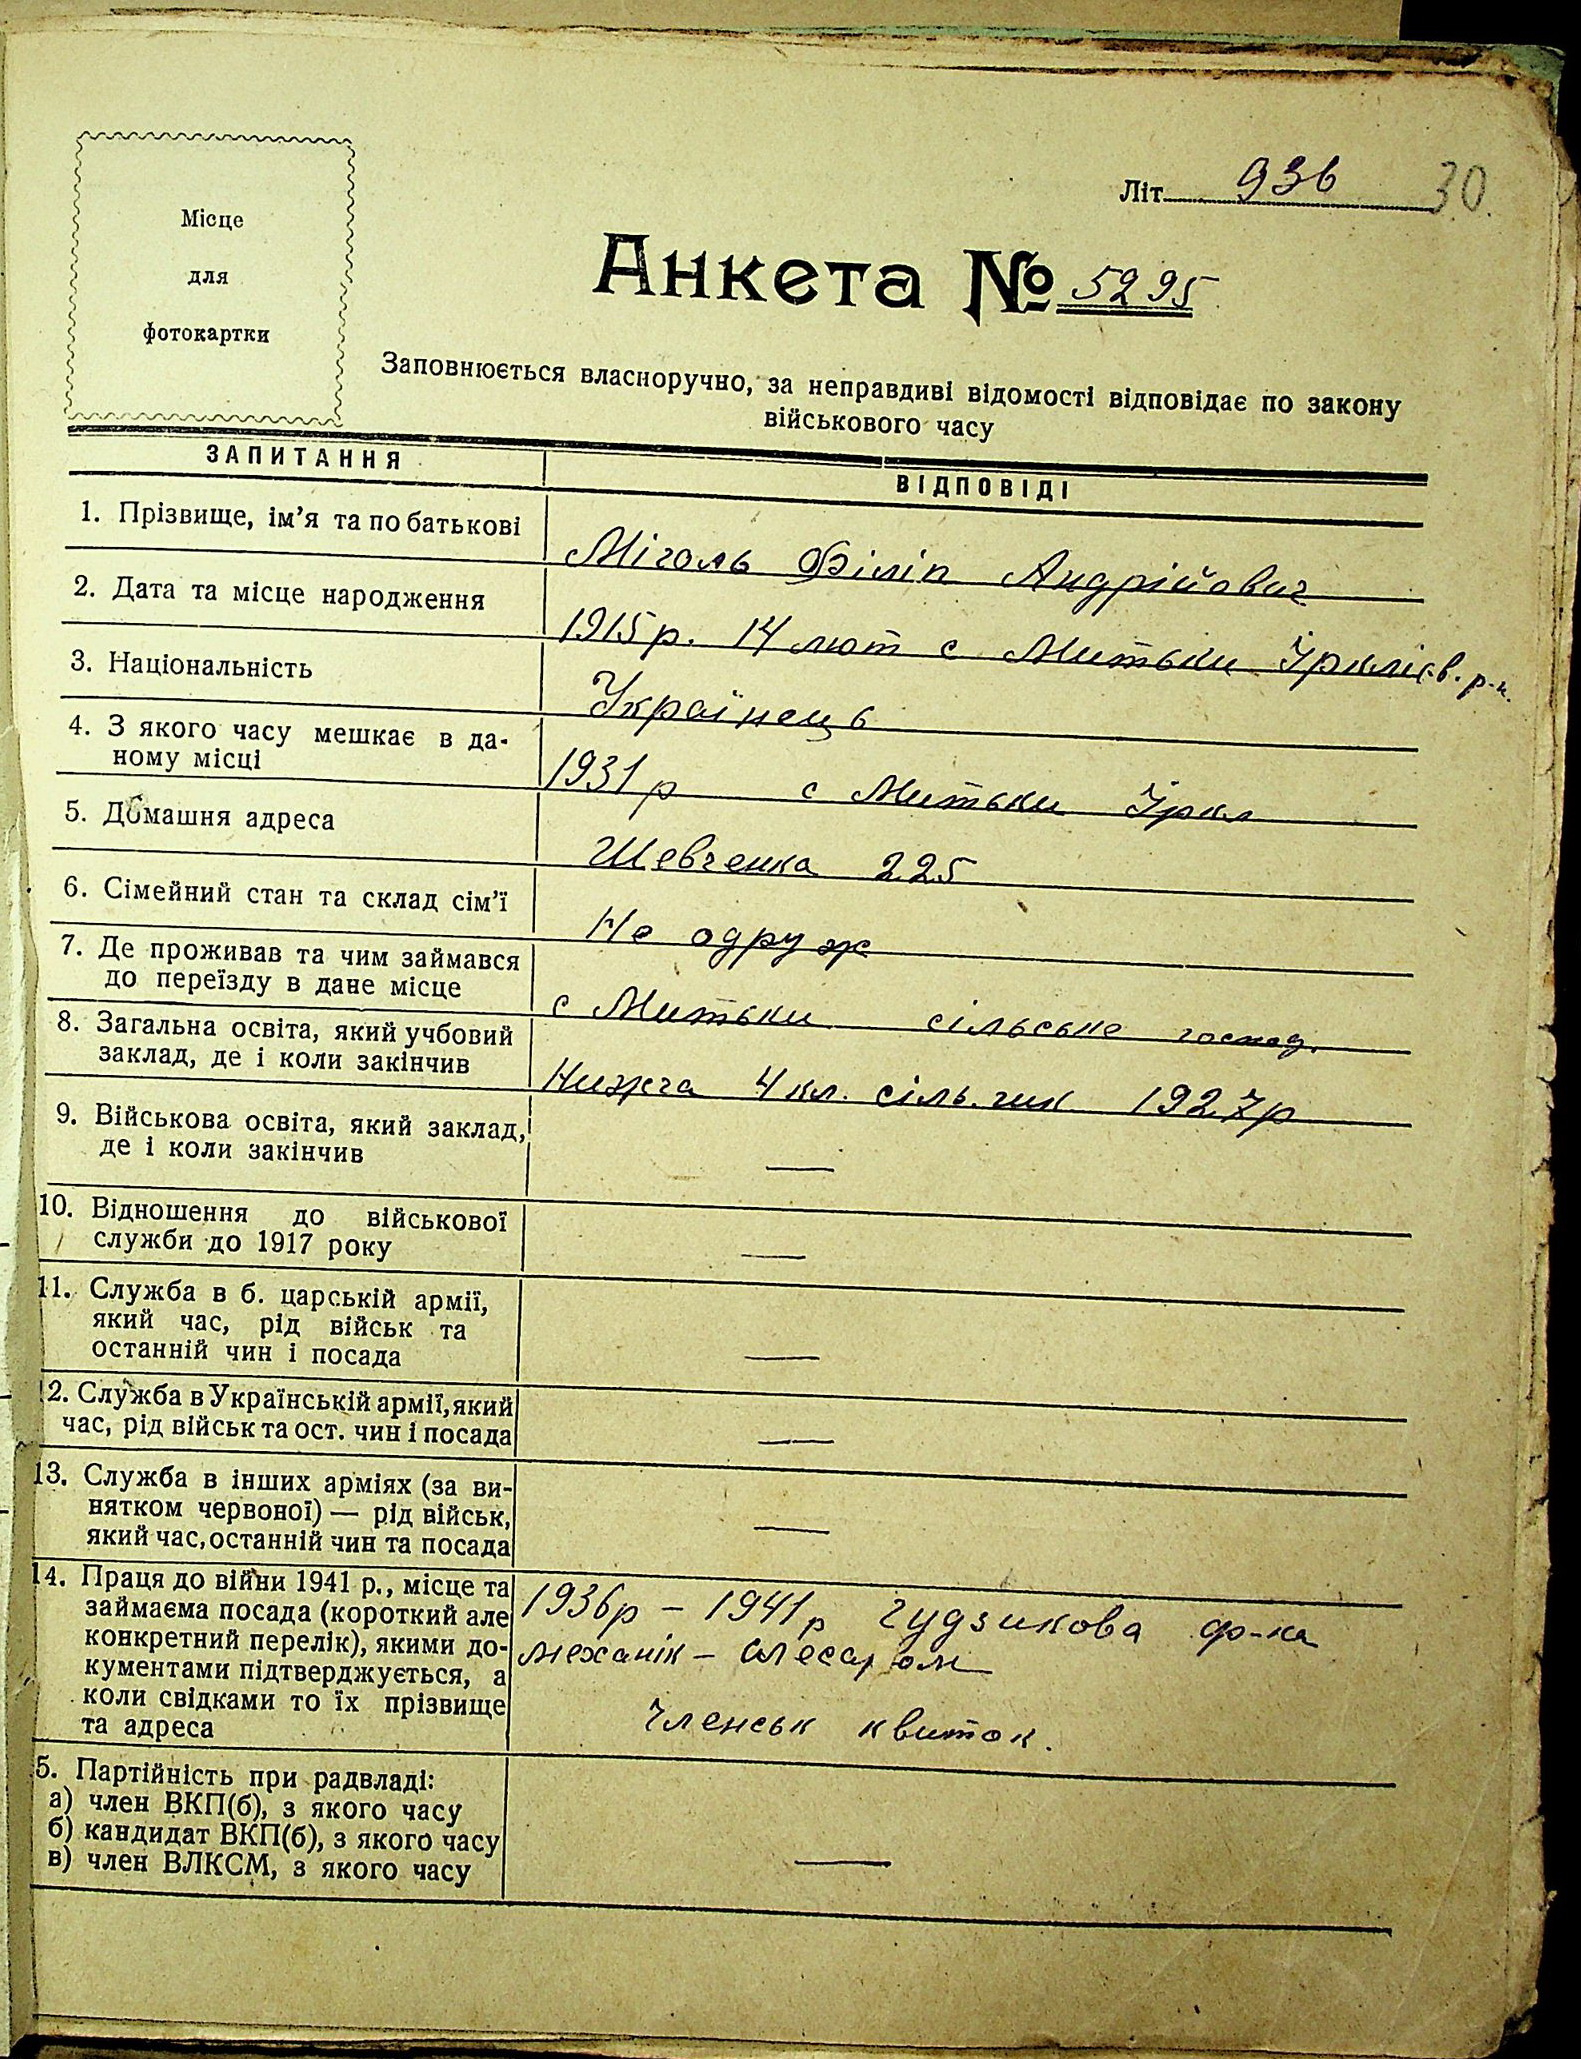 Літ. 936 30.
Місце
для
фотокартки
Анкета № 5295
Заповнюється власноручно, за неправдиві відомості відповідає по закону
військового часу
ЗАПИТАННЯ
ВІДПОВІДІ
1. Прізвище, ім'я та по батькові
Міголь Філіп Андрійович
2. Дата та місце народження
1915 р. 14 лют с Митьки Іркліїв. р-н.
3. Національність
Українець
4. З якого часу мешкає в да-
ному місці
1931 р с Митьки Іркл
5. Домашня адреса
Шевченка 225
6. Сімейний стан та склад сім'ї
Не одруж
7. Де проживав та чим займався
до переїзду в дане місце
с Митьки сільське господ.
8. Загальна освіта, який учбовий
заклад, де і коли закінчив
Нижча 4 кл. сіль. 1927 р
9. Військова освіта, який заклад,
де і коли закінчив
—
10. Відношення до військової
служби до 1917 року
—
11. Служба в б. царській армії,
який час, рід військ та
останній чин і посада
—
12. Служба в Українській армії, який
час, рід військ та ост. чин і посада
—
13. Служба в інших арміях (за ви-
нятком червоної) — рід військ,
який час, останній чин та посада
—
14. Праця до війни 1941 р., місце та
займаєма посада (короткий але
конкретний перелік), якими до-
кументами підтверджується, а
коли свідками то їх прізвище
та адреса
1936 р – 1941 р гудзикова ф-ка
механік – слесаром
Членськ квиток.
5. Партійність при радвладі:
а) член ВКП(б), з якого часу
б) кандидат ВКП(б), з якого часу
в) член ВЛКСМ, з якого часу
—